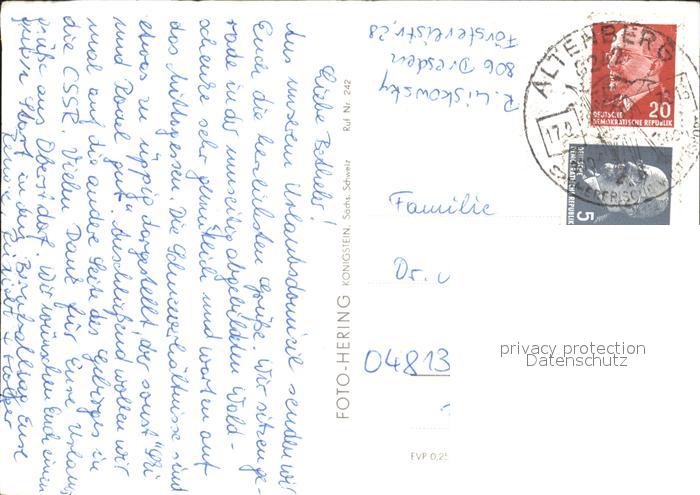 Liebe Bothels!
Aus unserem Urlaubsdomizil senden wir
Euch die herzlichsten Grüße. Wir sitzen ge-
rade in der umseitig abgebildeten Wald-
schenke sehr gemütlich und warten auf
das Mittagessen. Die Schneeverhältnisse sind
etwas zu üppig dargestellt, aber sonst "Ski
und Rodel gut". Anschließend wollen wir
mal auf die andere Seite des Gebirges in
die CSSR. Vielen Dank für Eure Urlaubs-
grüße aus Oberhof. Wir wünschen Euch einen
guten Start in
Eure
FOTO-HERING KÖNIGSTEIN, Sächs. Schweiz Ruf Nr. 242
R. Liskowsky
806 Dresden
Försterlistr. 28
ALTENBERG
8242
17.2.
20
DEUTSCHE
DEMOKRATISCHE REPUBLIK
5
DEUTSCHE
DEMOKRATISCHE REPUBLIK
Familie
Dr.
04813
EVP 0,25
privacy protection
Datenschutz